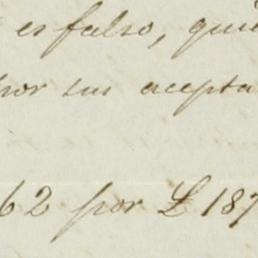 es falso, qui
por sus acepta
62 por £ 187